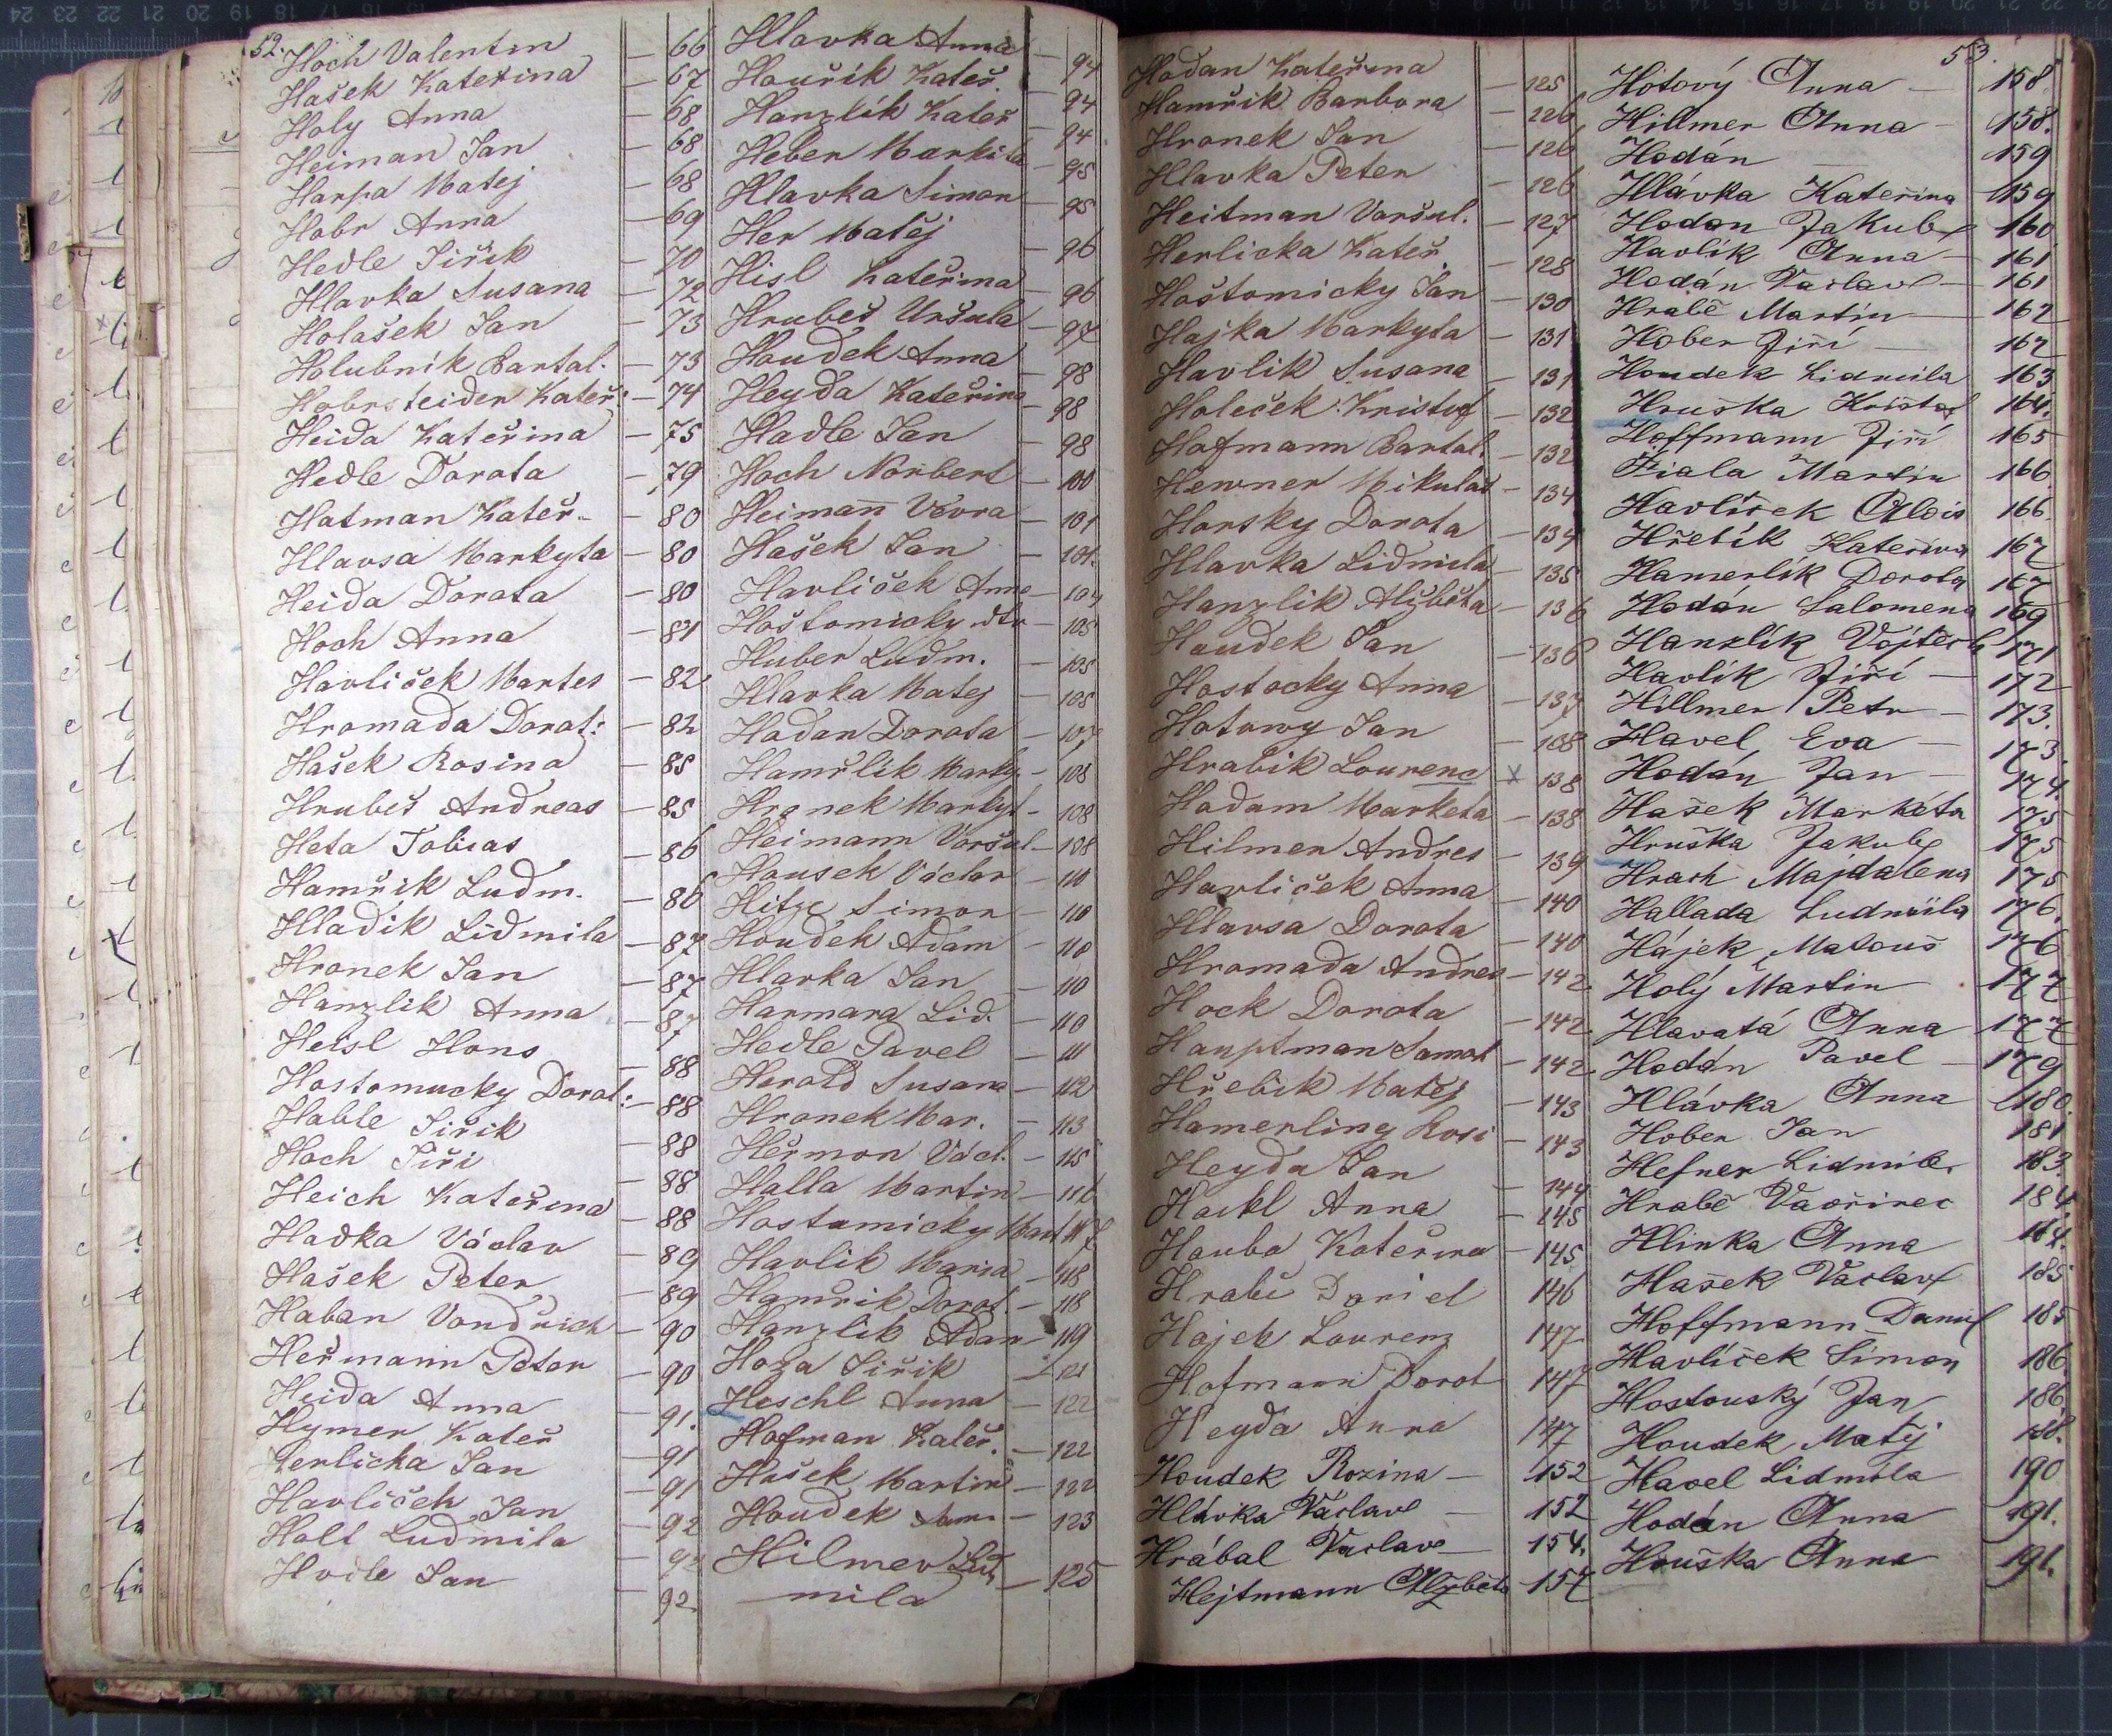 52.
Hoch Valentin — 66
Hašek Kateřina — 67
Holy Anna — 68
Heiman Jan — 68
Harpa Matej — 68
Hobr Anna — 69
Hedle Jiřik — 70
Hlavka Susana — 72
Holašek Jan — 73
Holubnik Bartal. — 73
Hobrsteider Kateř: — 74
Heida Kateřina — 75
Hedle Dorata — 79
Hatman Kateř. — 80
Hlavsa Markyta — 80
Heida Dorata — 80
Hoch Anna — 81
Havliček Martes — 82
Hromada Dorat: — 82
Hašek Rosina — 85
Hrubeš Andreas — 85
Heta Tobias — 86
Hamřik Ludm. — 86
Hladik Lidmila — 87
Hronek Jan — 87
Hanzlik Anna — 87
Heisl Hons — 88
Hostomucky Dorat: — 88
Hable Jiřik — 88
Hoch Jiři — 88
Heich Kateřina — 88
Hadka Václav — 89
Hašek Peter — 89
Haban Vondřich — 90
Heřmann Peter — 90
Heida Anna — 91.
Hymer Kateř — 91
Herlicka Jan — 91
Havliček Jan — 92
Holt Ludmila — 92
Hodle Jan — 92.
Hlavka Anna — 94
Houřik Kateř. — 94
Hanzlik Kateř — 94
Heber Markita — 95
Hlavka Simon — 95
Her Matěj — 96
Hisl Kateřina — 96
Hrubeš Uršula — 97
Houdek Anna — 98
Heyda Kateřina — 98
Hadle Jan — 98
Hoch Norbert — 100
Heimann Věvra — 101
Hašek Jan — 101.
Havliček Anna — 104
Hoštomicky — 105
Huber Ludm. — 105
Hlavka Matej — 105
Hadan Dorota — 107
Hamřlik Marky — 108
Hronek Markyt — 108
Heimann Voršul — 108
Housek Václav — 110
Hitze Simon — 110
Houdek Adam — 110
Hlavka Jan — 110
Harmara Lid. — 110
Hedle Pavel — 111
Harold Susana — 112
Hronek Mar. — 113
Heřmon Václ. — 115
Halla Martin — 116
Hostomicky Mart 117
Havlik Maria — 118
Hamřik Dorot — 118
Hanzlik Adam — 119
Hoza Jiřik — 121
Heschl Anna — 122
Hofman Kateř. — 122
Hašek Martin — 122
Houdek — 123
Hilmer Lud
mila — 125
53.
Hodan Kateřina — 125
Hamřik Barbora — 226
Hronek Jan — 126
Hlavka Peter — 126
Heitman Voršul. — 127
Herlicka Kateř. — 128
Hoštomicky Jan — 130
Hajka Markyta — 131
Havlik Susana — 131
Holeček Kristof — 132
Hofmann Bartal. — 132
Hewner Mikulaš — 134
Horsky Dorota — 134
Hlavka Lidmila — 135
Hanzlik Alžběta — 136
Houdek Jan — 136
Hostocky Anna — 137
Hotowy Jan — 108
Hrabik Lourenc × 138
Hadam Marketa — 138
Hilmer Andres — 139
Havliček Anna — 140
Hlavsa Dorota — 140
Hromada Andres — 142
Hock Dorota — 142.
Hauptman Samol — 142.
Hřebik Matěj — 143
Hamerling Rosi — 143
Heyda Jan — 144
Hackl Anna — 145
Hauba Kateřina — 145
Hrabě Daniel 146
Hajek Laurenz 147
Hofmann Dorot 147
Heyda Anna 147
Houdek Rozina — 152
Hlávka Václav — 152
Hrábal Václav — 154.
Hejtmann Alžběta 157
Hotový Anna — 158.
Hillmer Anna — 158.
Hodán — 159
Hlávka Kateřina 159
Hodan Jakub 160
Havlík Anna — 161
Hodán Vaclav — 161
Hrabě Martin — 162
Hober Jiří — 162
Houdek Lidmila 163
Hruška Krištof 164.
Hoffmann Jiří 165
Fiala Martin 166
Havlíček Alois 166.
Hřebík Kateřina 167
Hamerlik Dorota 167
Hodán Salomena 169
Hanzlík Vojtěch 171
Havlík Jiří — 172
Hillmer Petr — 173.
Havel Eva — 173.
Hodán Jan — 174.
Hašek Marketa 175
Hruška Jakub 175
Hrach Majdalena 175
Hallada Ludmila 176.
Hájek Matouš 176
Holý Martin 177
Hlavatá Anna 177
Hodán Pavel — 179
Hlávka Anna 180.
Hober Jan 181
Hefner Lidmila 183.
Hrabě Vavřinec 184.
Hlinka Anna 184.
Hašek Václav 185
Hoffmann Daniel 185
Havlíček Šimon 186
Hostouský Jan 186.
Houdek Matěj 188.
Havel Lidmila 190
Hodán Anna 191.
Houška Anna 191.